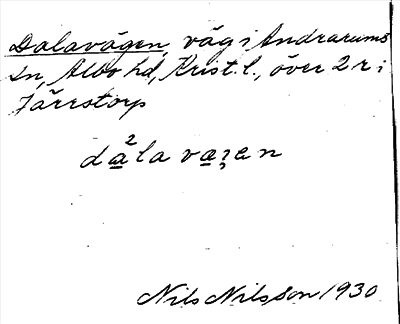 Dalavägen, väg i Andrarums
sn, Albo hd, Krist. l., över 2 r i
Järrstorp
da²la væɜen
Nils Nilsson 1930